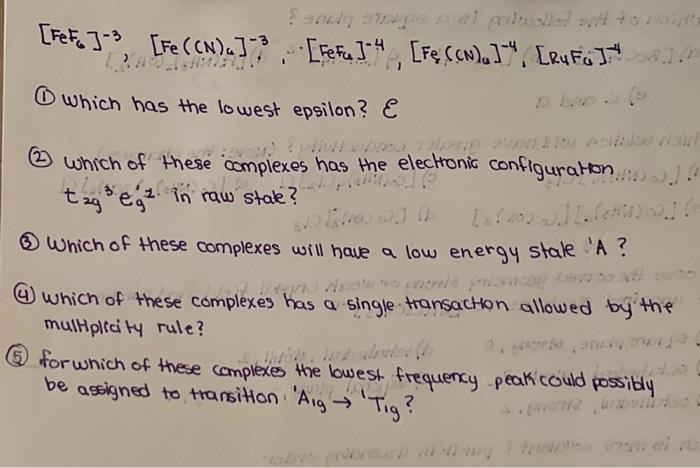 [FeF6]-3, [Fe(CN)6]-3, [FeF6]-4, [Fe(CN)6]-4, [RuF6]-4
① which has the lowest epsilon? Ɛ
② which of these complexes has the electronic configuration
t2g3 eg2 in raw state?
③ Which of these complexes will have a low energy state 'A ?
④ which of these complexes has a single transaction allowed by the
multiplicity rule?
⑤ for which of these complexes the lowest frequency peak could possibly
be assigned to transition 'A1g → 'T1g?